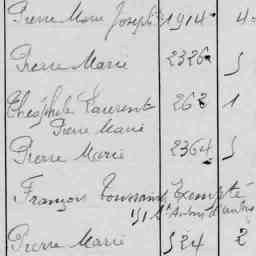 Pierre Marie Joseph 1914 4
Pierre Marie 2326 5
Théophile Laurent 262 1
Pierre Marie
Pierre Marie 2364 5
François Toussaint Exempté
Pierre Marie 524 2